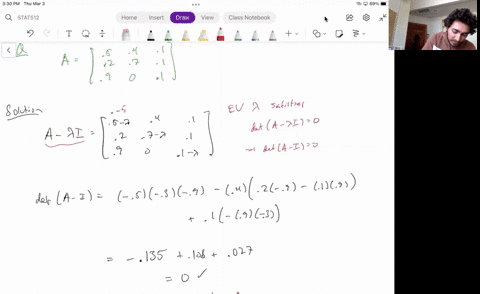 3:30 PM Thu Mar 3
89%
STATS12
Home Insert Draw View Class Notebook
Q
A = [ .5 .4 .1
.2 .7 .1
.9 0 .1 ]
Solution
.-5
A-λI = [ .5-λ .4 .1
.2 .7-λ .1
.9 0 .1-λ ]
EV λ satisfies
det (A-λI)=0
→ det (A-I)=0
det (A-I) = (-.5)(-.3)(-.9) - (.4)(.2(-.9) - (.1)(.9))
+ .1(-(.9)(-.3))
= -.135 + .108 + .027
= 0 ✓